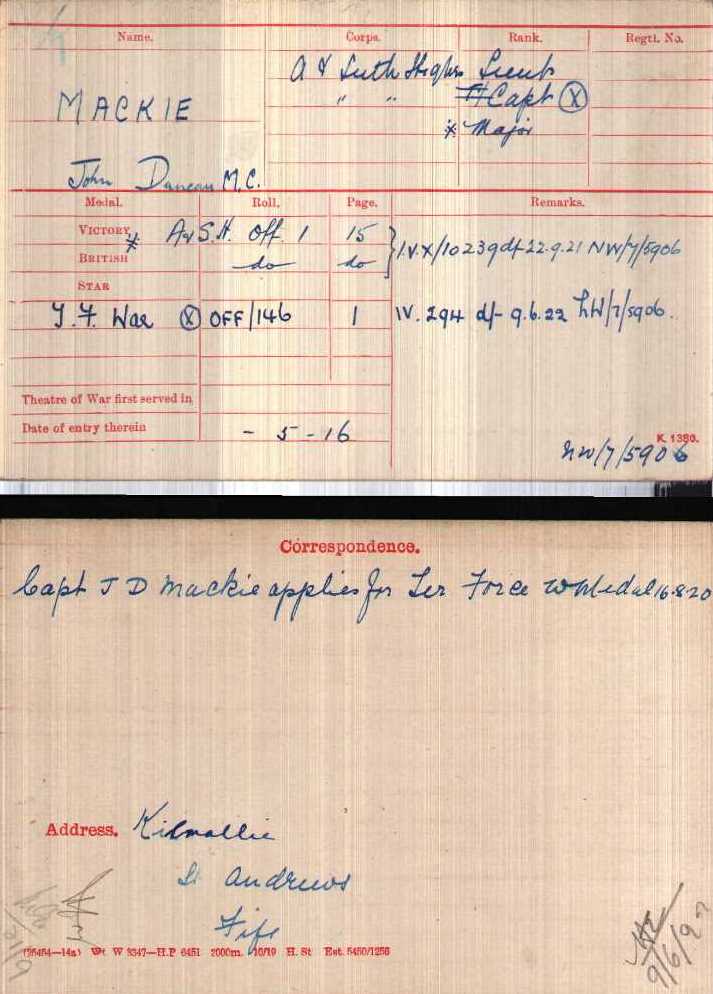 Name. Corps. Rank. Regtl. No.
A & Suth Highrs Lieut
" " Capt (X)
MACKIE
* Major
John Duncan M.C.
Medal. Roll. Page. Remarks.
VICTORY * A & S.H. Off. 1 15
I.V.X/10239 df 22.9.21 NW/7/5906
BRITISH do do
STAR
T.F. War (X) OFF/146 1 IV. 294 df 9.6.22 NW/7/5906.
Theatre of War first served in
Date of entry therein - 5 - 16
K. 1380.
NW/7/5906
Correspondence.
Capt J D Mackie applies for Ter Force W Medal 16.8.20
Address. Kilmallie
St Andrews
Fife
(26454—14a) Wt. W 3347—H.P 6451 2000m. 10/19 H. St Est. 5450/1256
9/6/22